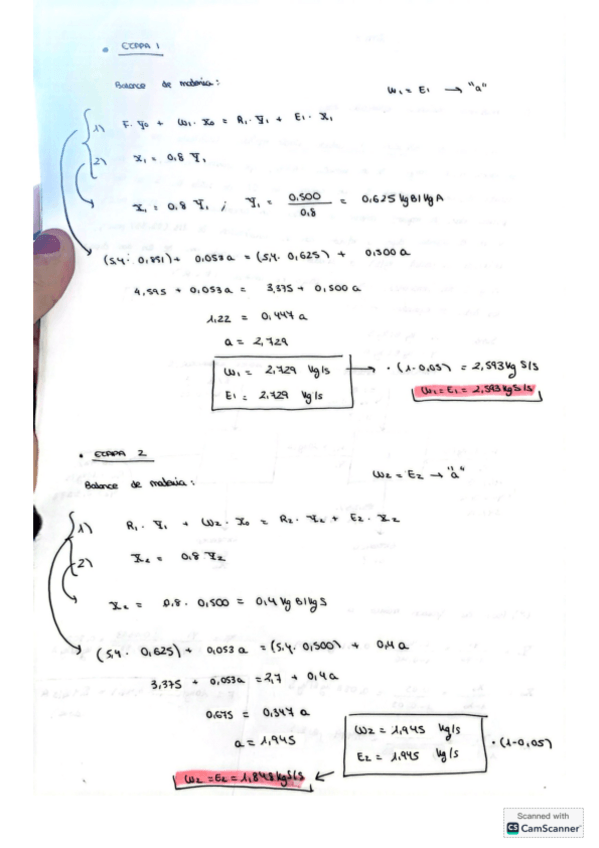 • ETAPA 1
Balance de materia:
W₁ = E₁ → "a"
1) F·Y₀ + W₁·X₀ = R₁·Y₁ + E₁·X₁
2) X₁ = 0,8 Y₁
X₁ = 0,8 Y₁ ; Y₁ = 0,500 / 0,8 = 0,625 Kg B/Kg A
(5,4 · 0,851) + 0,053a = (5,4 · 0,625) + 0,500 a
4,595 + 0,053a = 3,375 + 0,500 a
1,22 = 0,447 a
a = 2,729
W₁ = 2,729 Kg/s
E₁ = 2,729 Kg/s
→ · (1-0,05) = 2,593 Kg S/s
W₁ = E₁ = 2,593 Kg S/s
• ETAPA 2
Balance de materia:
W₂ = E₂ → "a"
1) R₁·Y₁ + W₂·X₀ = R₂·Y₂ + E₂·X₂
2) X₂ = 0,8 Y₂
X₂ = 0,8 · 0,500 = 0,4 Kg B/Kg S
(5,4 · 0,625) + 0,053 a = (5,4 · 0,500) + 0,4 a
3,375 + 0,053a = 2,7 + 0,4a
0,675 = 0,347 a
a = 1,945
W₂ = 1,945 Kg/s
E₂ = 1,945 Kg/s
· (1-0,05)
W₂ = E₂ = 1,848 Kg S/s
Scanned with
CS CamScanner